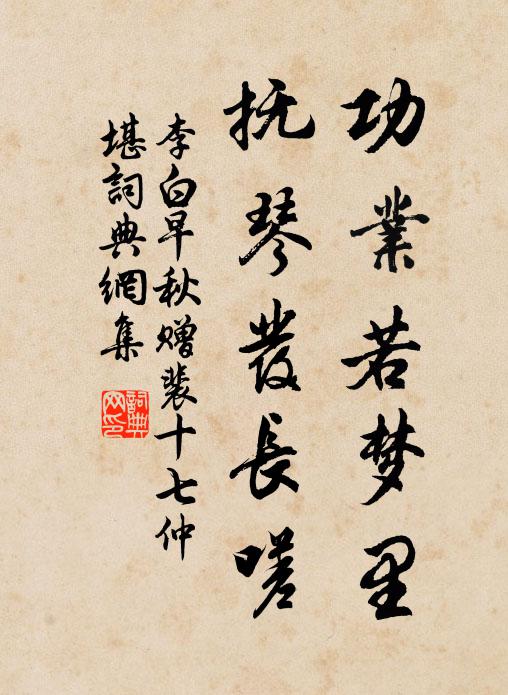 功業若梦里
抚琴發長嗟
李白早秋赠裴十七仲
堪詞典網集
詞典
网印